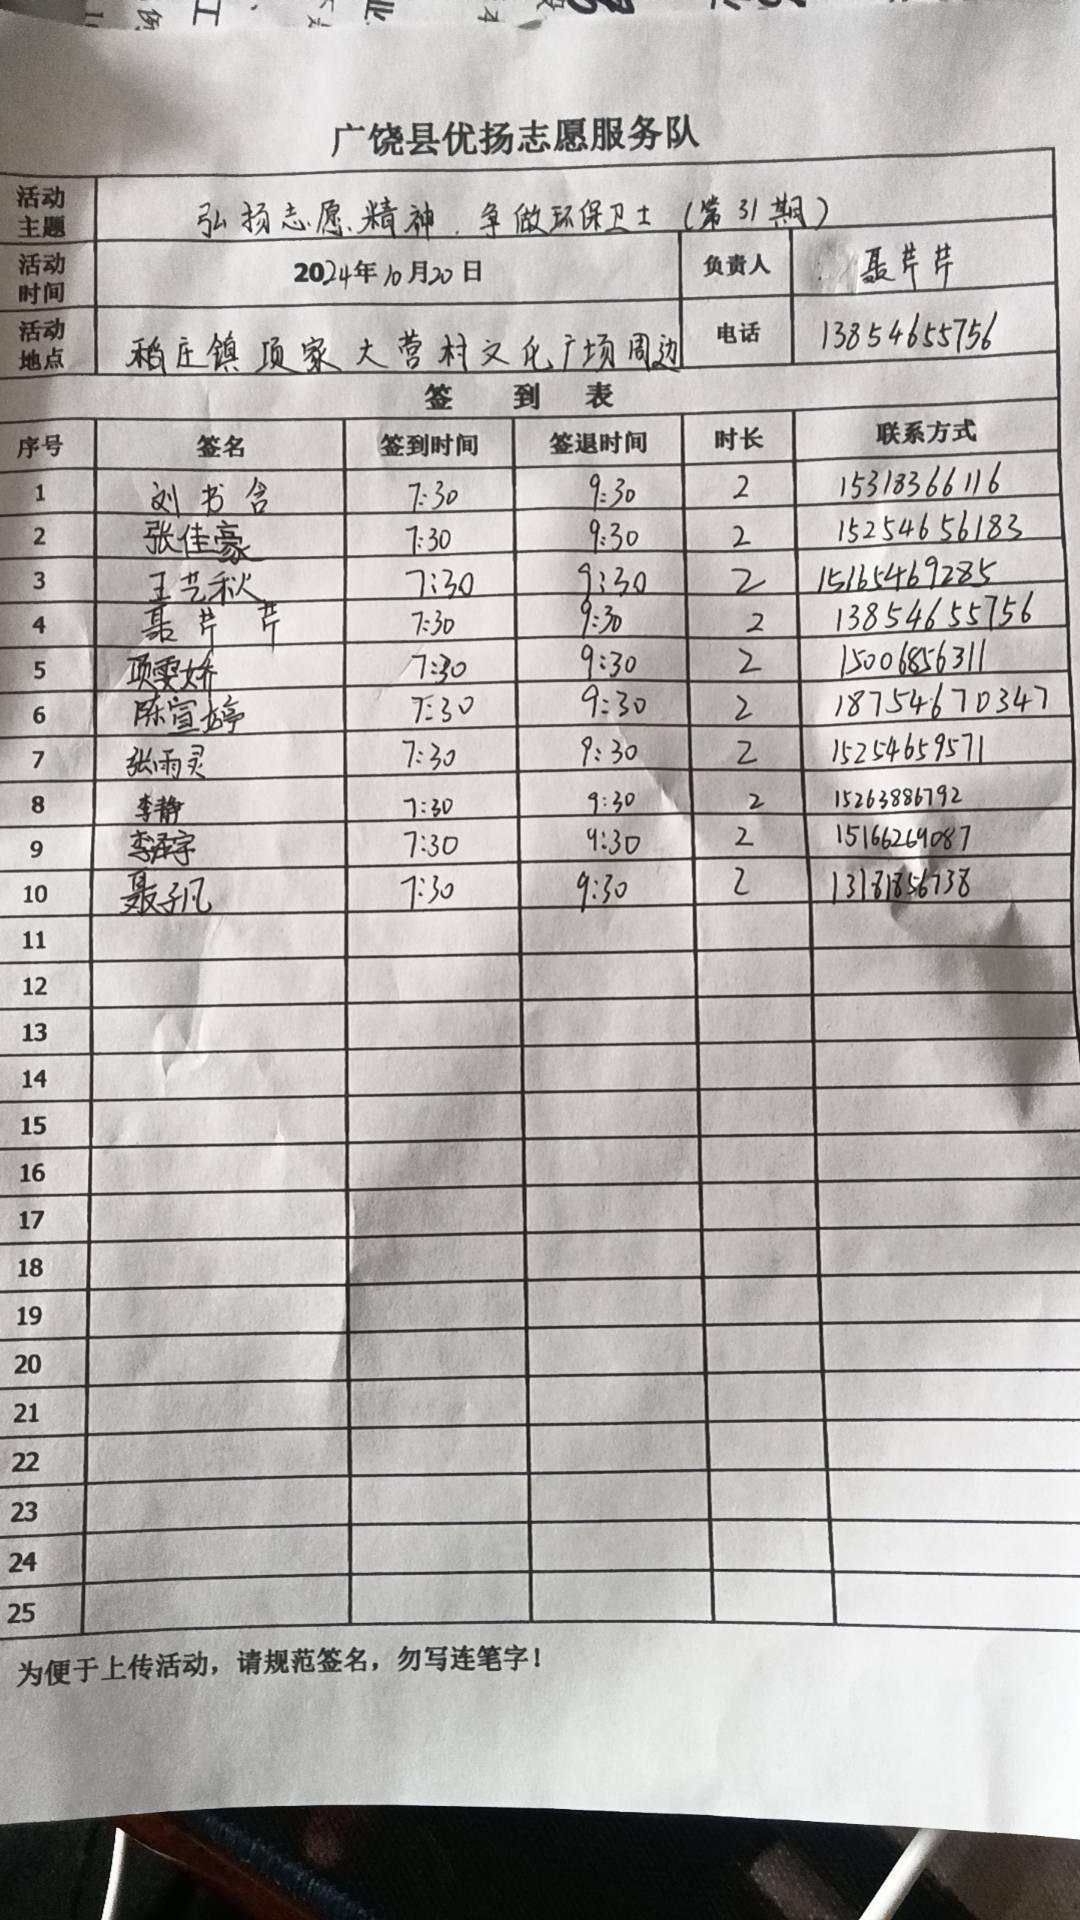 广饶县优扬志愿服务队
活动主题 弘扬志愿精神.争做环保卫士(第31期)
活动时间 2024年10月20日 负责人 聂芹芹
活动地点 稻庄镇项家大营村文化广场周边 电话 13854655756
签到表
序号 签名 签到时间 签退时间 时长 联系方式
1 刘书含 7:30 9:30 2 15318366116
2 张佳豪 7:30 9:30 2 15254656183
3 王艺秋 7:30 9:30 2 15165469285
4 聂芹芹 7:30 9:30 2 13854655756
5 项雯娇 7:30 9:30 2 15006856311
6 陈宣婷 7:30 9:30 2 18754670347
7 张雨灵 7:30 9:30 2 15254659571
8 李静 7:30 9:30 2 15263886792
9 李泽宇 7:30 9:30 2 15166269087
10 聂子凡 7:30 9:30 2 13181856738
11
12
13
14
15
16
17
18
19
20
21
22
23
24
25
为便于上传活动，请规范签名，勿写连笔字！